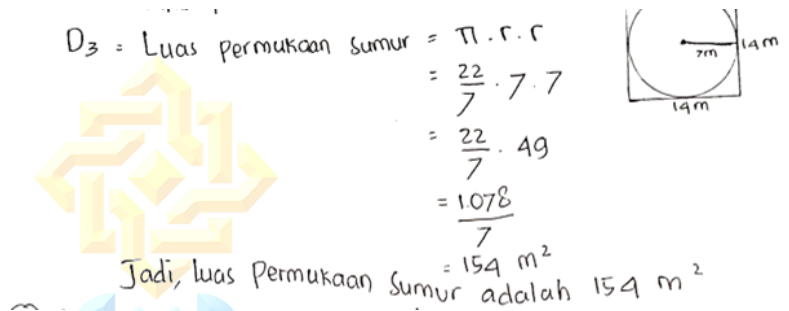 D3 = Luas permukaan sumur = π . r . r
= 22/7 . 7 . 7
= 22/7 . 49
= 1.078/7
= 154 m²
Jadi, luas Permukaan Sumur adalah 154 m²
7m
14m
14m